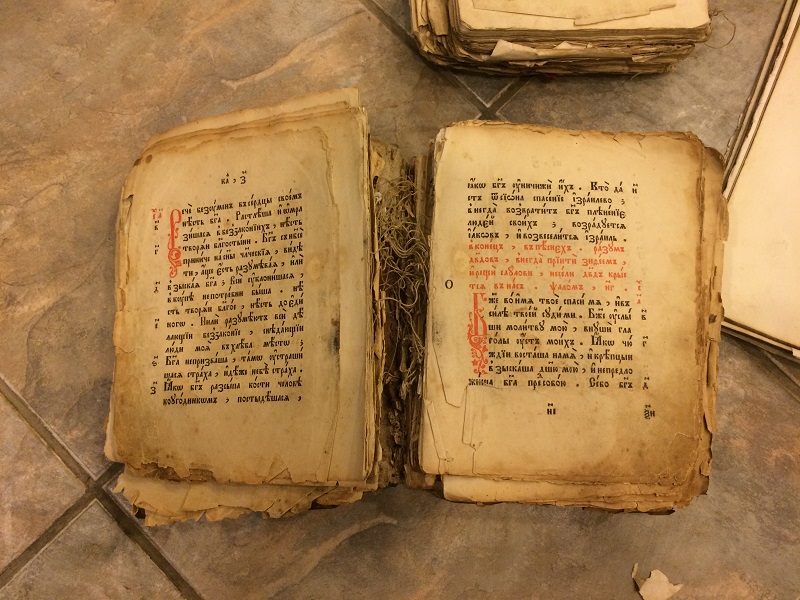 Речѐ безꙋ́менъ въ се́рдцы свое́мъ
нѣ́сть бг҃а . Растлѣ́ша и҆ ѡ҆мра
зи́шася в беззако́нїихъ , нѣ́сть
творѧ́й благосты́ни . Бг҃ъ с нб҃се
прини́че на сы́ны человѣ́ческїѧ , ви́дѣ
ти , а҆́ще є҆́сть разꙋмѣ́вая , и҆лѝ
взыска́я бг҃а ; Всѝ ᲂу҆клони́шася ,
вкꙋ́пѣ непотре́бни бы́ша . нѣ́
сть творѧ́й благо́е , нѣ́сть до є҆ди́
ного . Ни лѝ разꙋмѣ́ютъ всѝ дѣ́
лающїи беззако́нїе , снѣда́ющїи
лю́ди моя̀ в хлѣ́ба мѣ́сто ;
Бг҃а не призва́ша , та́мо ᲂу҆страши́
шася стра́ха , и҆дѣ́же не бѣ̀ стра́ха .
Ꙗ҆́кѡ бг҃ъ разсы́па ко́сти человѣ
коᲂуго́дникомъ , постыдѣ́шася ,
ꙗ҆́кѡ бг҃ъ ᲂу҆ничижѝ и҆́хъ . Кто̀ да́
стъ ѿ сїѡ́на спасе́нїе і҆зра́илево ;
внегда̀ возврати́тъ бг҃ъ плѣне́нїе
люде́й свои́хъ , возра́дꙋется
і҆а́ковъ , и҆ возвесели́тся і҆зра́иль .
в коне́цъ , в пѣ́снехъ . ра́зꙋмъ
дв҃довъ , внегда̀ прїитѝ зифе́ѡмъ ,
и҆ рещѝ саꙋ́лови , не се́ ли дв҃дъ кры́е
тся в на́съ . ѱало́мъ , н҃г .
Бж҃е во и҆́мѧ твоѐ спаси́ мѧ , и҆ въ
си́лѣ твое́й сꙋди́ ми . Бж҃е ᲂу҆слы́
ши моли́твꙋ мою̀ , внꙋшѝ гла
го́лы ᲂу҆́стъ мои́хъ . Ꙗ҆́кѡ чꙋ́
ждїи воста́ша на мѧ̀ , и҆ крѣ́пцыи
взыска́ша дш҃ꙋ мою̀ , и҆ не предло
жи́ша бг҃а пред̾ собо́ю . Се́ бо бг҃ъ